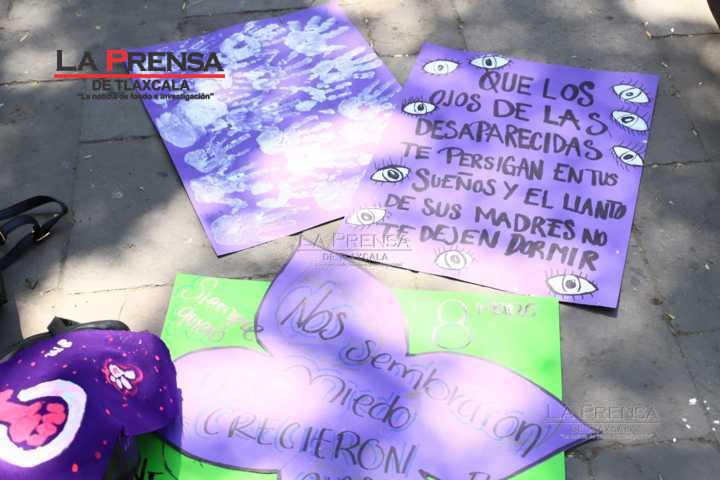 LA PRENSA
DE TLAXCALA
"La noticia de fondo e investigación"
QUE LOS
OJOS DE LAS
DESAPARECIDAS
TE PERSIGAN EN TUS
SUEÑOS Y EL LLANTO
DE SUS MADRES NO
TE DEJEN DORMIR
LA PRENSA
DE TLAXCALA
8
Nos sembrarón
Miedo
CRECIERON
LA PRENSA
DE TLAXCALA